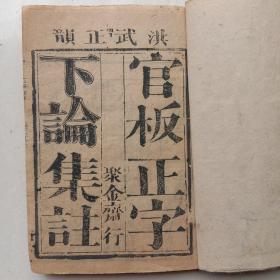 洪武正韻
官板正字
下論集註
聚金齋行